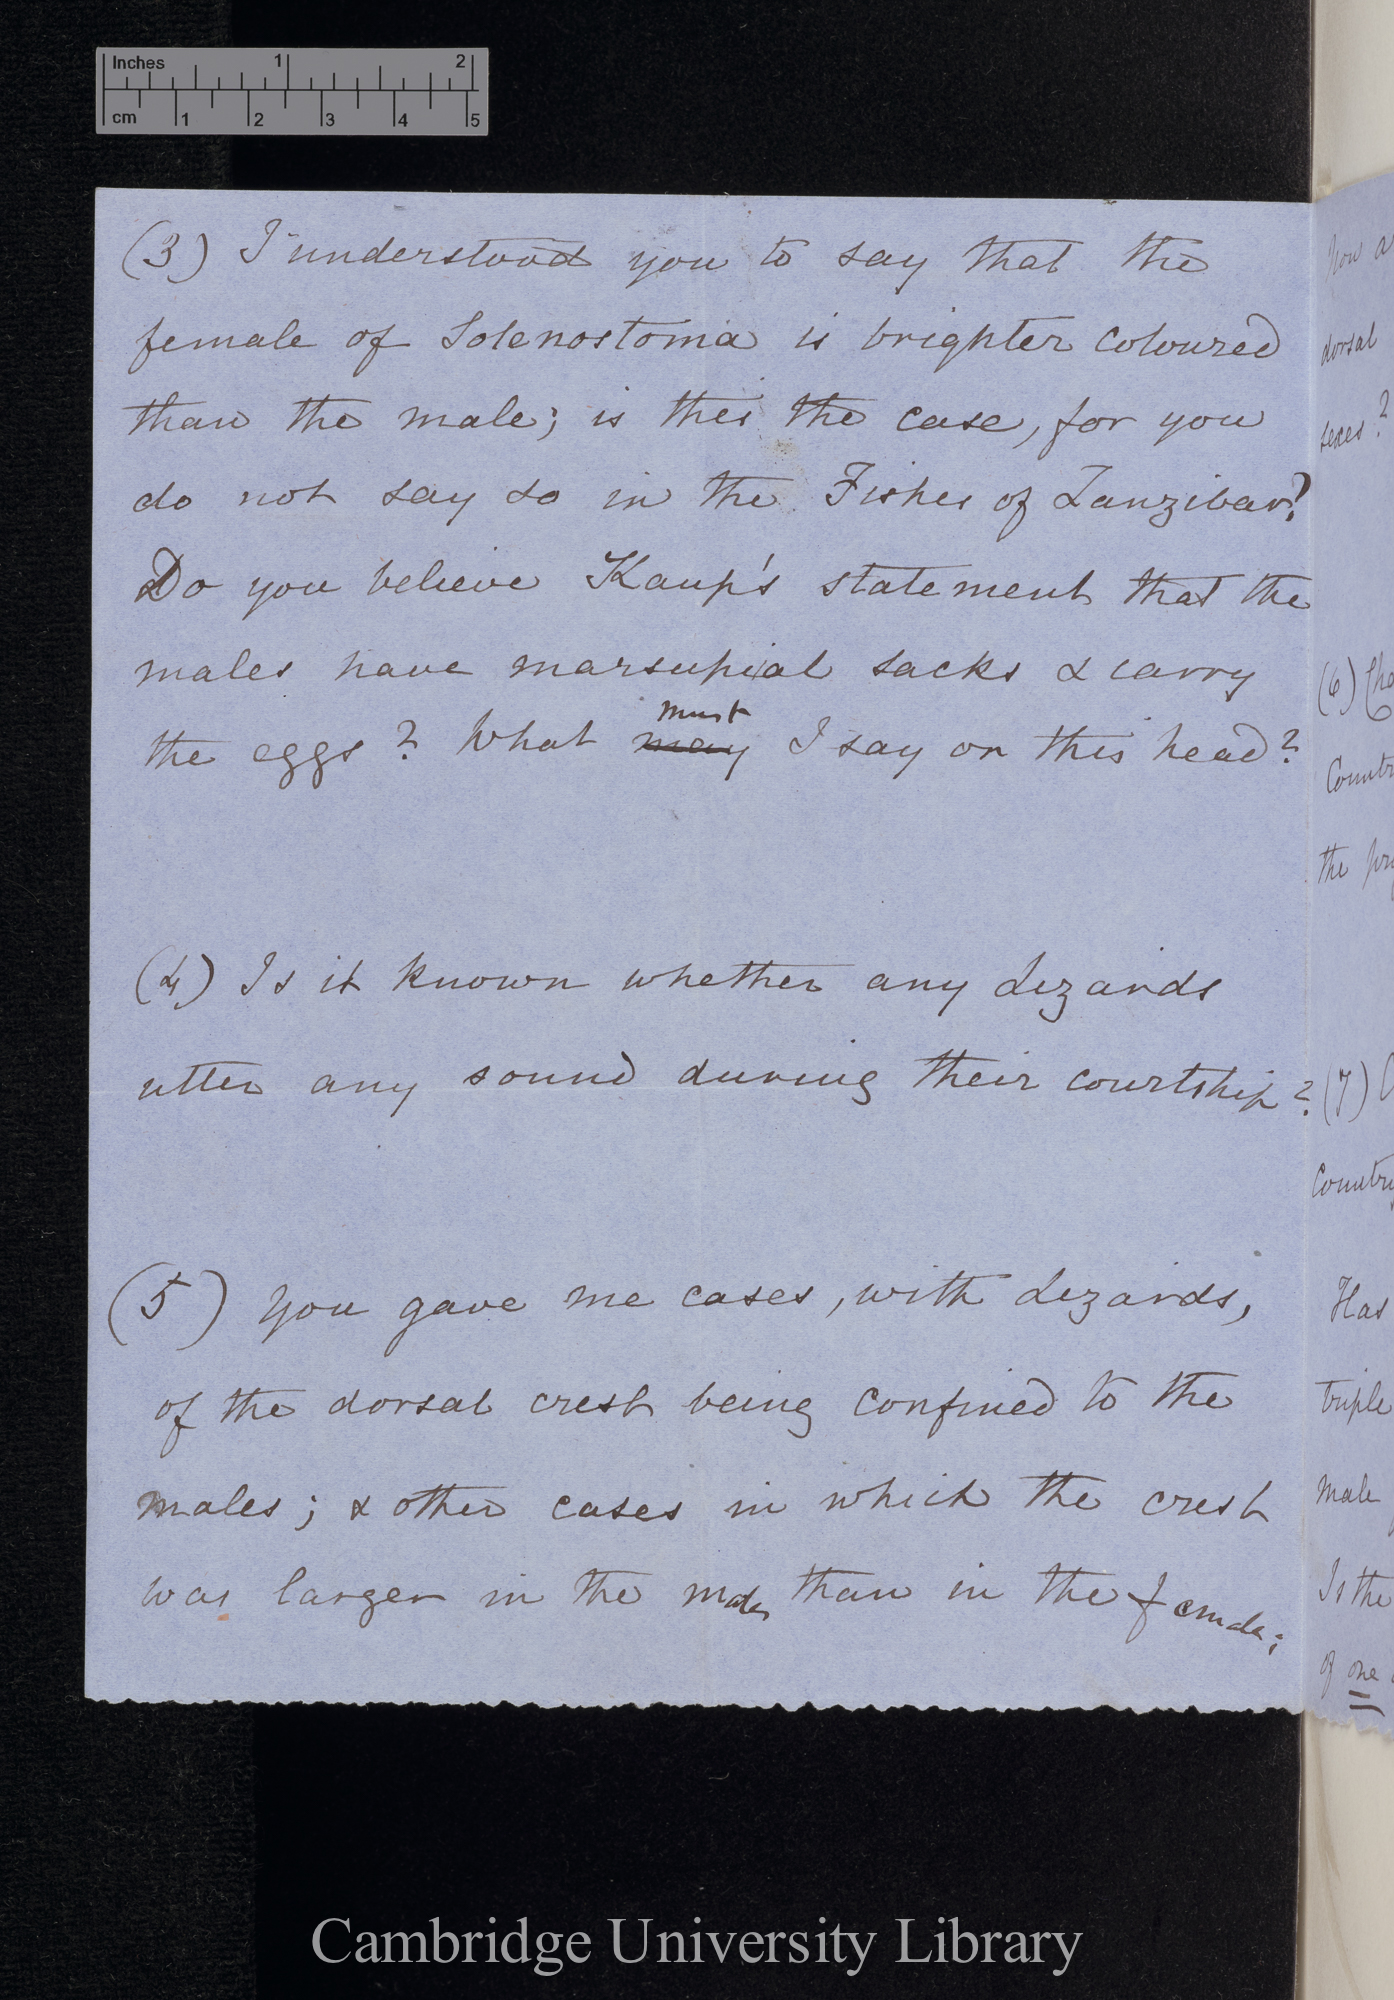 Inches 1 2
cm 1 2 3 4 5
(3) I understood you to say that the
female of Solenostoma is brighter coloured
than the male; is this the case, for you
do not say so in the Fishes of Zanzibar?
Do you believe Kaup's statement that the
males have marsupial sacks & carry
must
the eggs? What may I say on this head?
(4) Is it known whether any Lizards
utter any sound during their courtship?
(5) You gave me cases, with Lizards,
of the dorsal crest being confined to the
males; & other cases in which the crest
was larger in the males than in the female;
Now
dorsal
sexes?
(6)
the
(7)
Has
triple
male
Is the
of one
Cambridge University Library